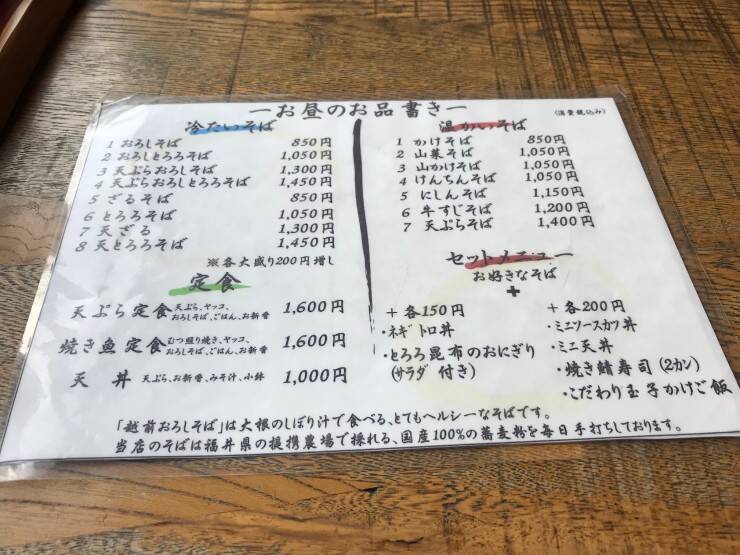 一お昼のお品書き一
(消費税込み)
冷たいそば
1 おろしそば 850円
2 おろしとろろそば 1,050円
3 天ぷらおろしそば 1,300円
4 天ぷらおろしとろろそば 1,450円
5 ざるそば 850円
6 とろろそば 1,050円
7 天ざる 1,300円
8 天とろろそば 1,450円
※各大盛り200円増し
定食
天ぷら定食 天ぷら、ヤッコ、 1,600円
おろしそば、ごはん、お新香
焼き魚定食 むつ照り焼き、ヤッコ、 1,600円
おろしそば、ごはん、お新香
天丼 天ぷら、お新香、みそ汁、小鉢 1,000円
温かいそば
1 かけそば 850円
2 山菜そば 1,050円
3 山かけそば 1,050円
4 けんちんそば 1,050円
5 にしんそば 1,150円
6 牛すじそば 1,200円
7 天ぷらそば 1,400円
セットメニュー
お好きなそば
+
+ 各150円
・ネギトロ丼
・とろろ昆布のおにぎり
(サラダ付き)
+ 各200円
・ミニソースカツ丼
・ミニ天丼
・焼き鯖寿司(2カン)
・こだわり玉子かけご飯
「越前おろしそば」は大根のしぼり汁で食べる、とてもヘルシーなそばです。
当店のそばは福井県の提携農場で採れる、国産100%の蕎麦粉を毎日手打ちしております。